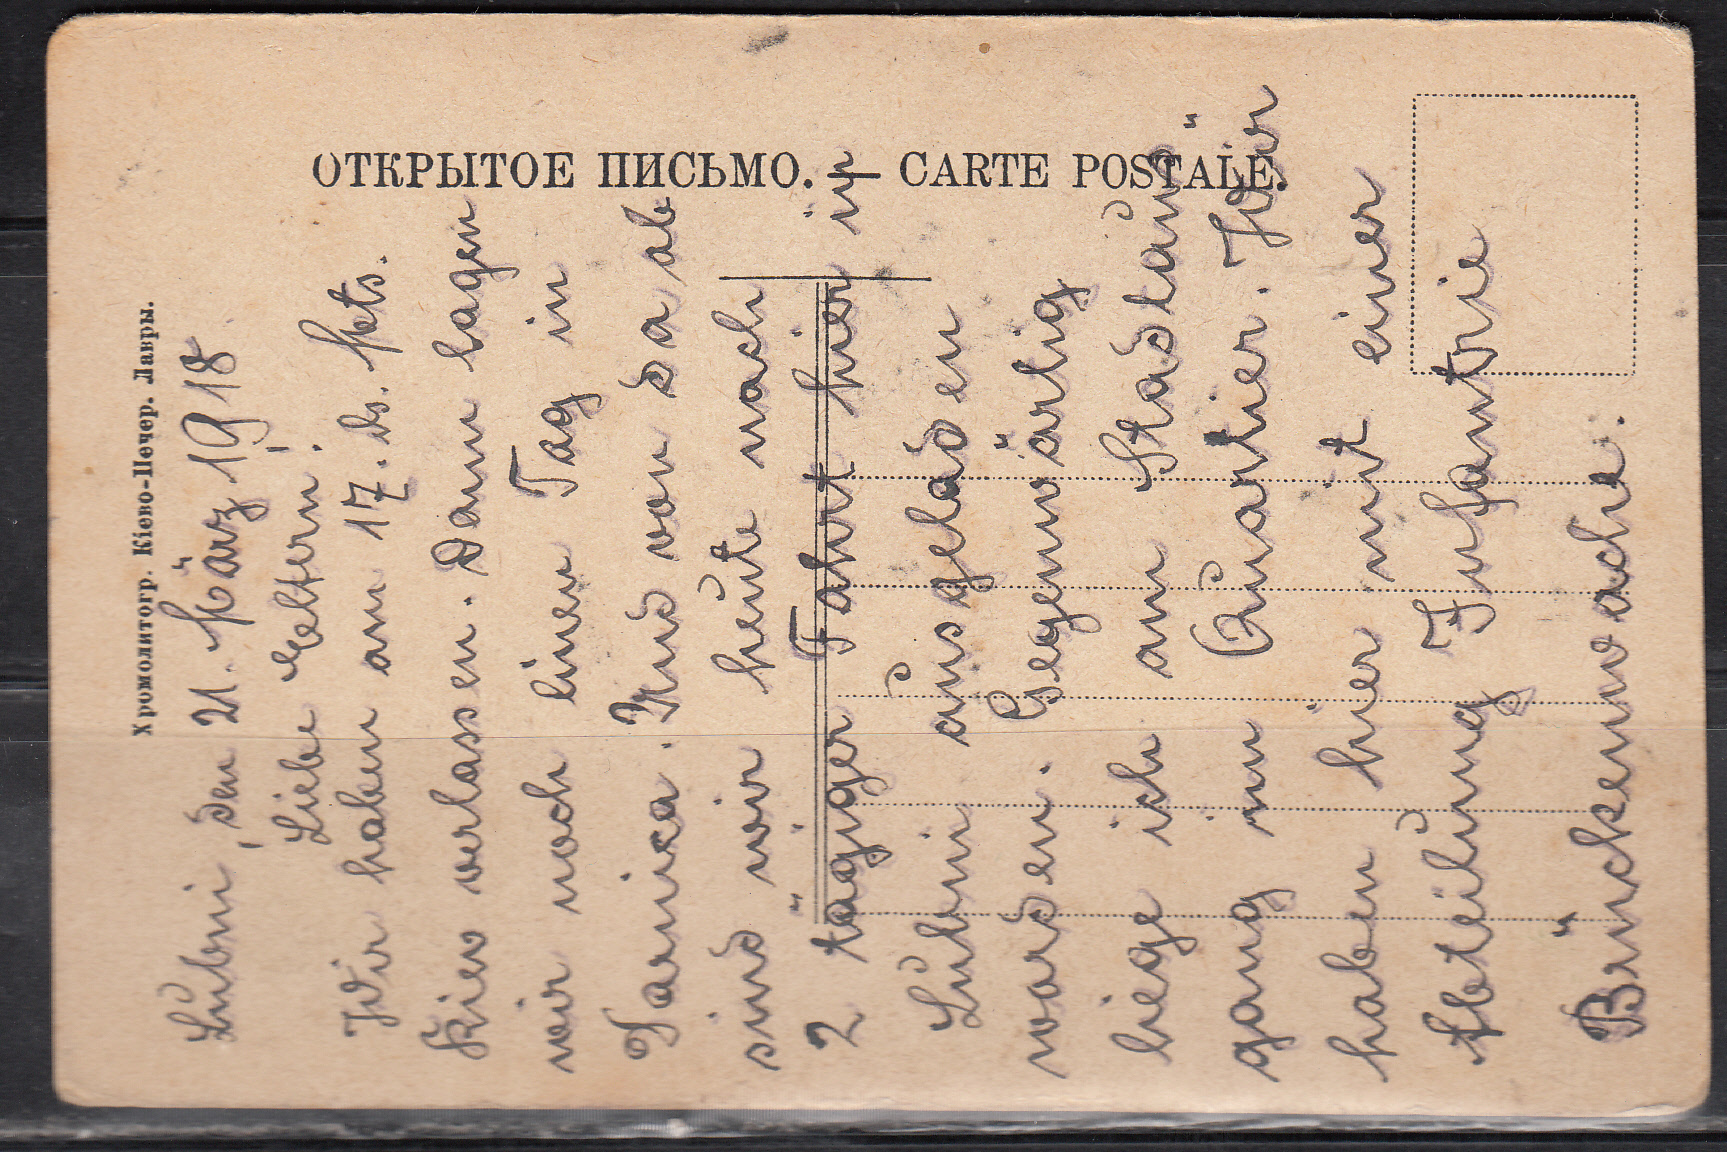 Хромолитогр. Кіево-Печер. Лавры.
ОТКРЫТОЕ ПИСЬМО. — CARTE POSTALE.
Lubni, den 21. März 1918
Liebe Eltern!
Wir haben am 17. ds. Mts.
Kiew verlassen. Dann lagen
wir noch einen Tag in
Darnica. Und von da ab
sind wir heute nach
2 tägiger Fahrt hier in
Lubni ausgeladen
worden. Gegenwärtig
liege ich am Stadtaus-
gang in Quartier. Wir
haben hier mit einer
Abteilung Infantrie
Brückenwache.